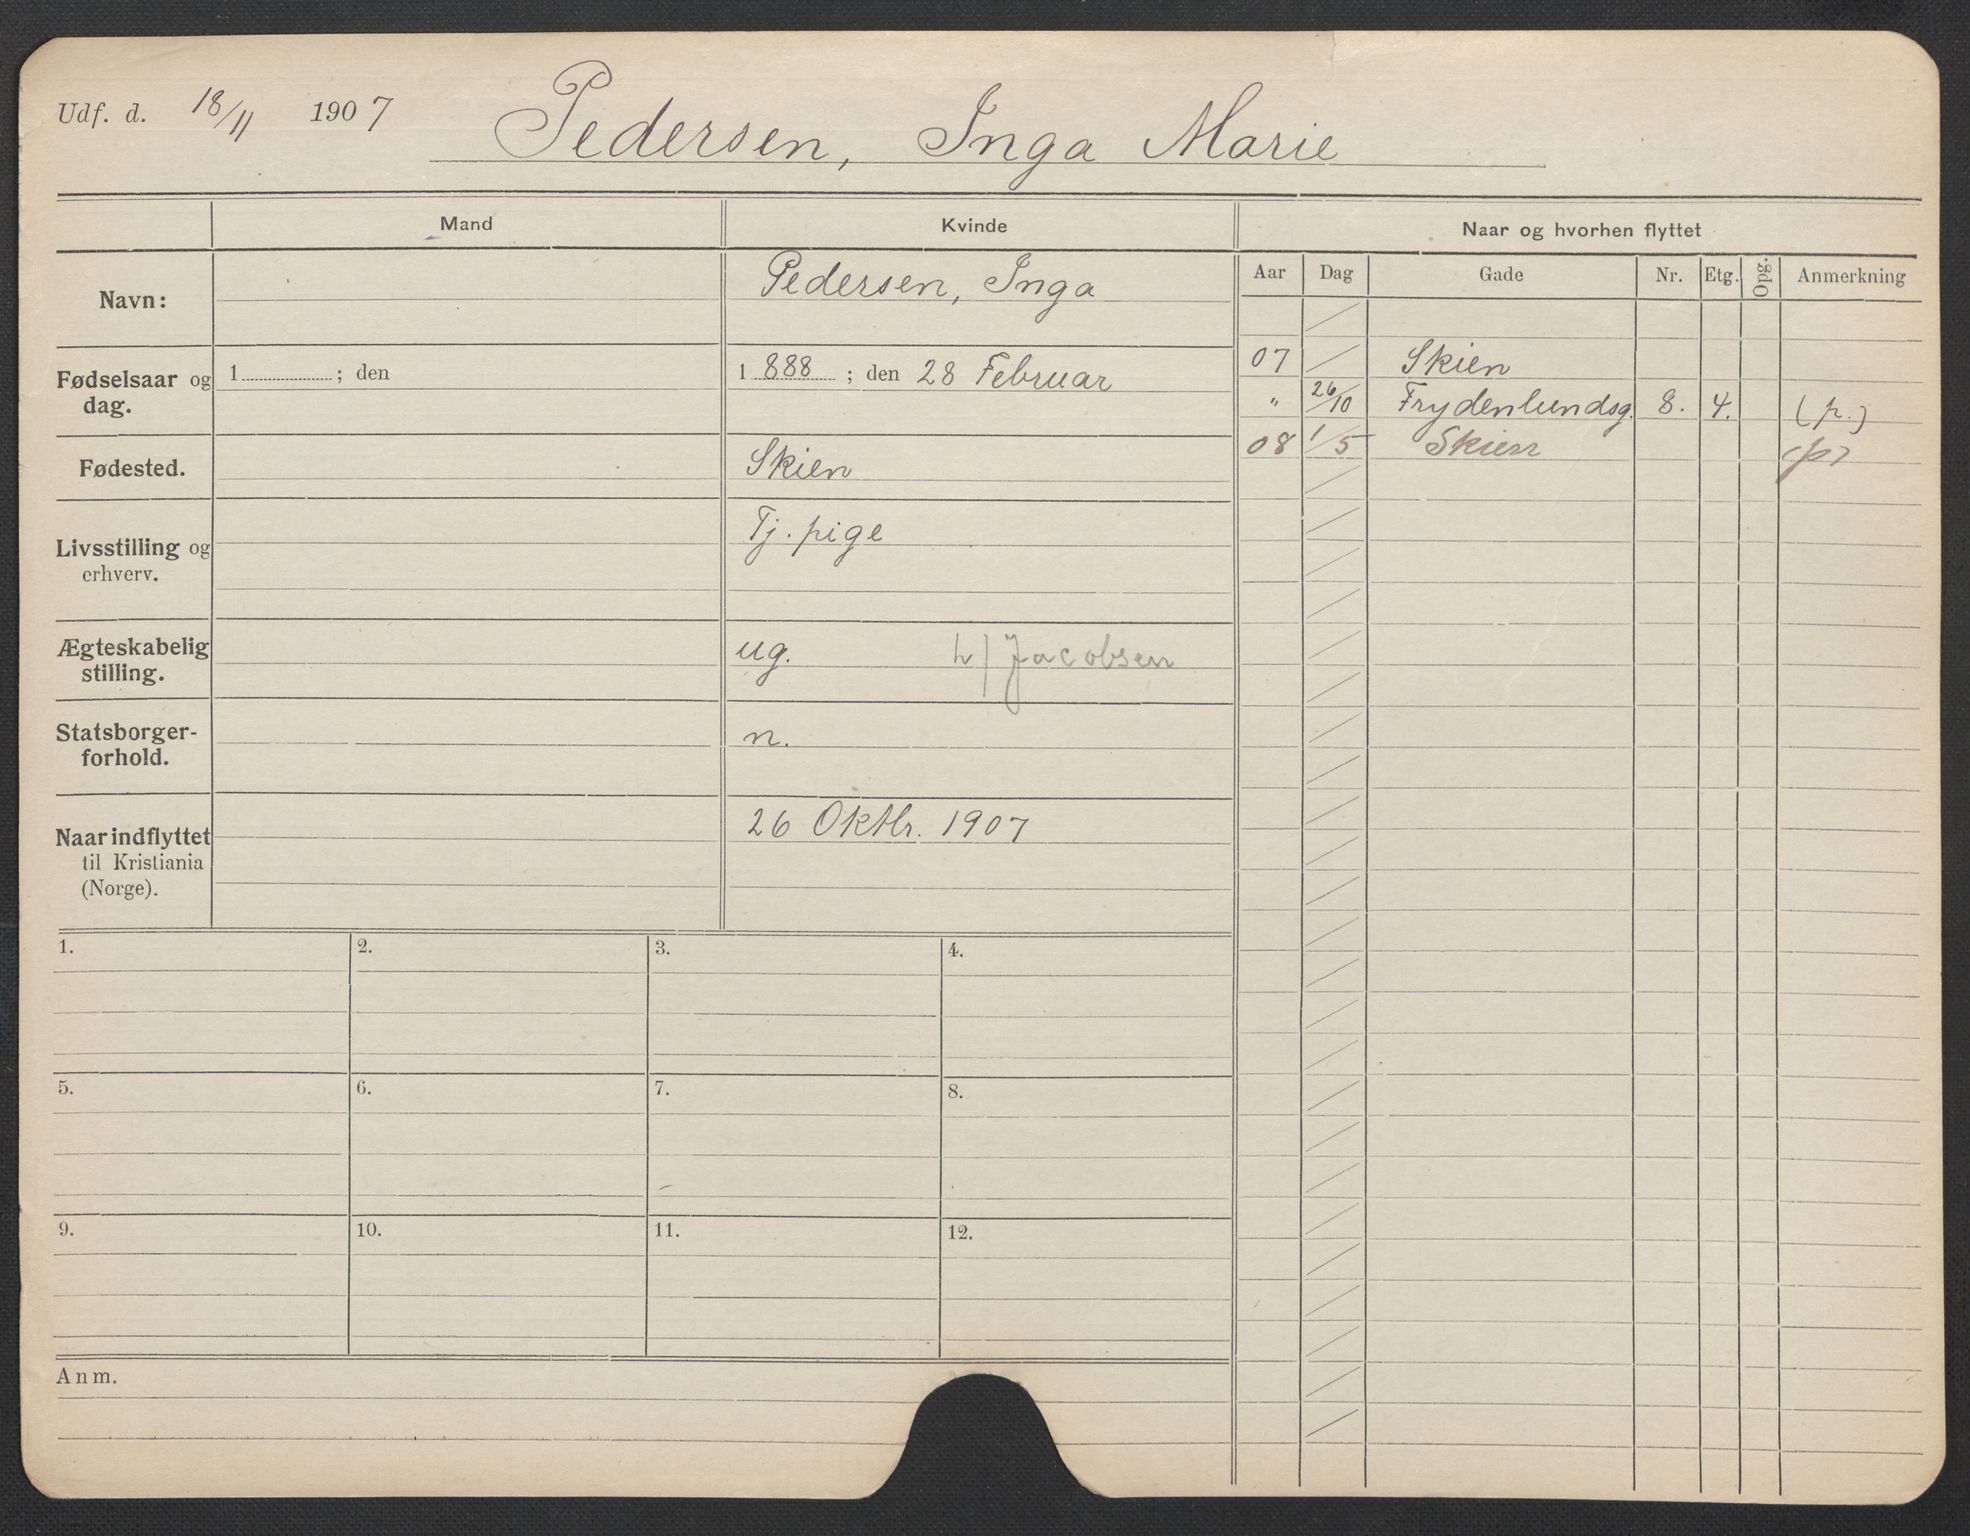 Udf. d. 18/11 1907 Pedersen, Inga Marie
Mand Kvinde Naar og hvorhen flyttet
Aar Dag Gade Nr. Etg. Opg. Anmerkning
Navn: Pedersen, Inga
Fødselsaar og dag. 1 ; den 1 888 ; den 28 Februar
Fødested. Skien
Livsstilling og erhverv. Tj. pige
Ægteskabelig stilling. ug. h/ Jacobsen
Statsborger-
forhold. n.
Naar indflyttet til Kristiania (Norge). 26 Oktbr. 1907
07 Skien
" 26/10 Frydenlundsg. 8. 4. (p.)
08 1/5 Skien (p)
1. 2. 3. 4.
5. 6. 7. 8.
9. 10. 11. 12.
Anm.